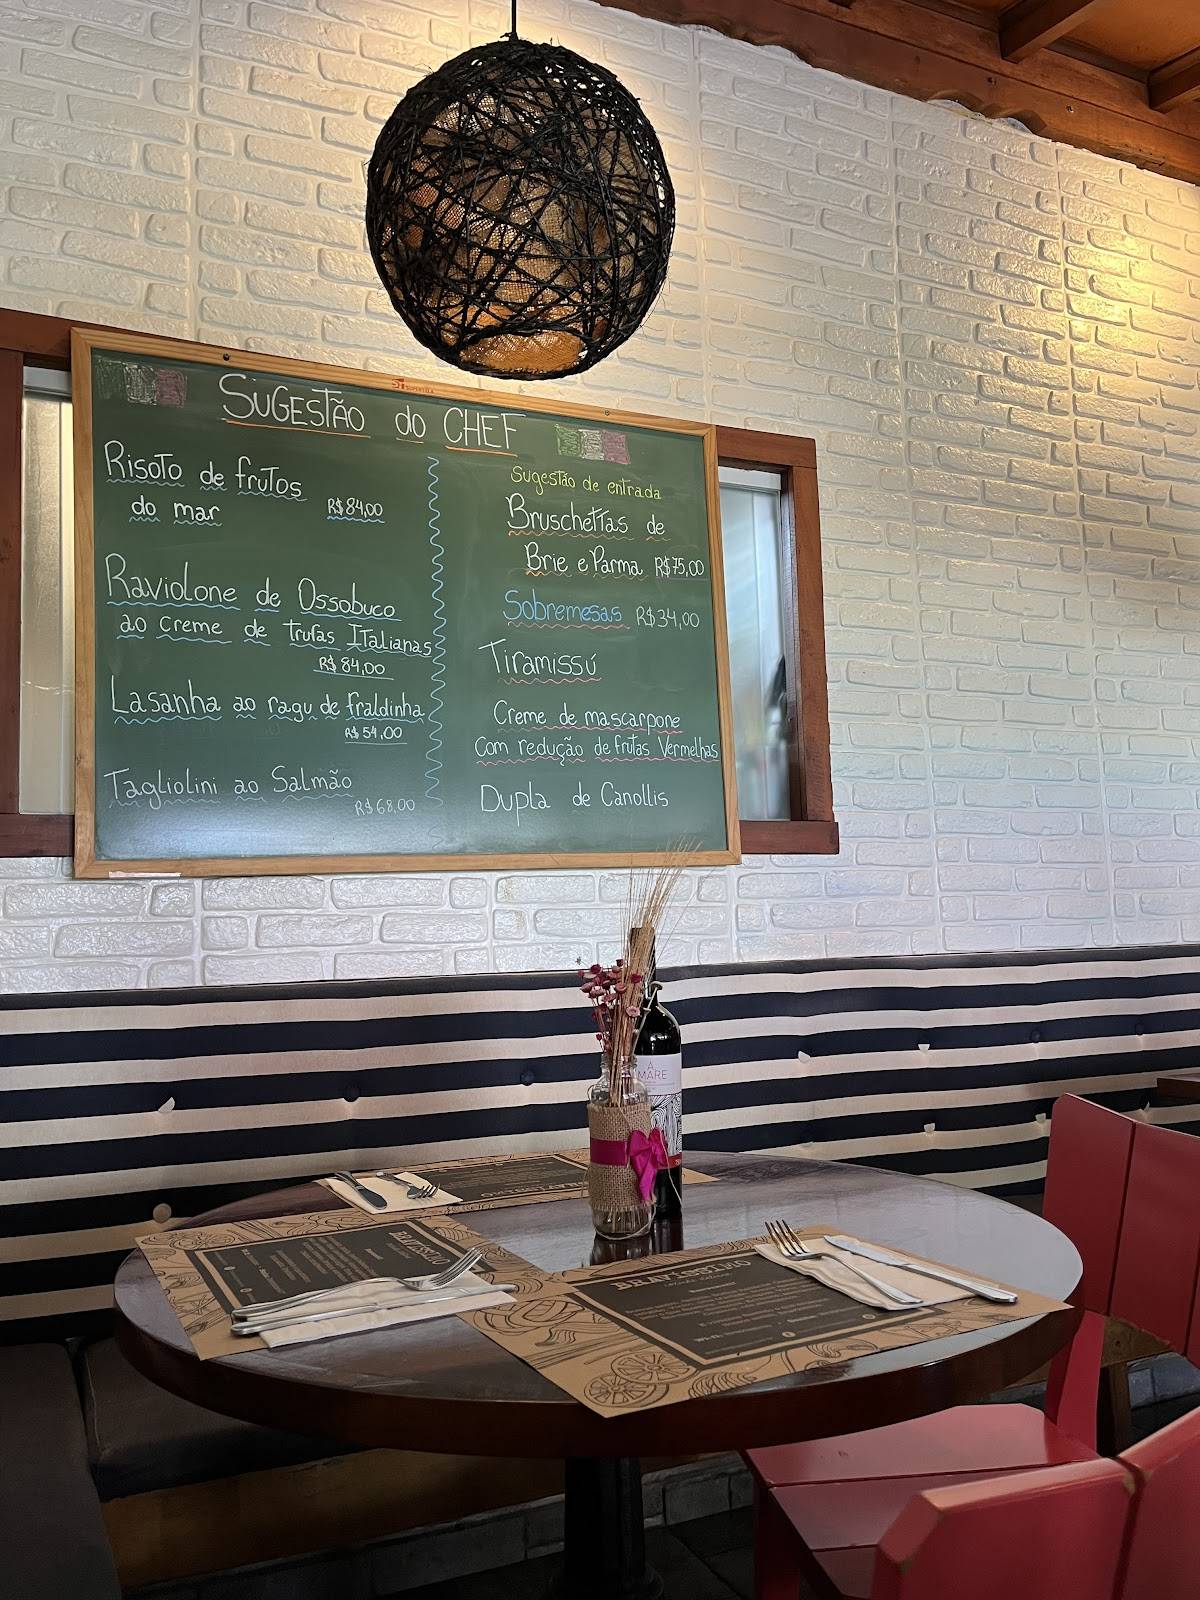 SUGESTÃO do CHEF
Risoto de frutos
do mar R$84,00
Raviolone de Ossobuco
ao creme de trufas Italianas
R$84,00
Lasanha ao ragu de fraldinha
R$54,00
Tagliolini ao Salmão
R$68,00
Sugestão de entrada
Bruschettas de
Brie e Parma R$75,00
Sobremesas R$34,00
Tiramissú
Creme de mascarpone
Com redução de frutas Vermelhas
Dupla de Canollis
MARE
BRAVISSIMO
BRAVISSIMO